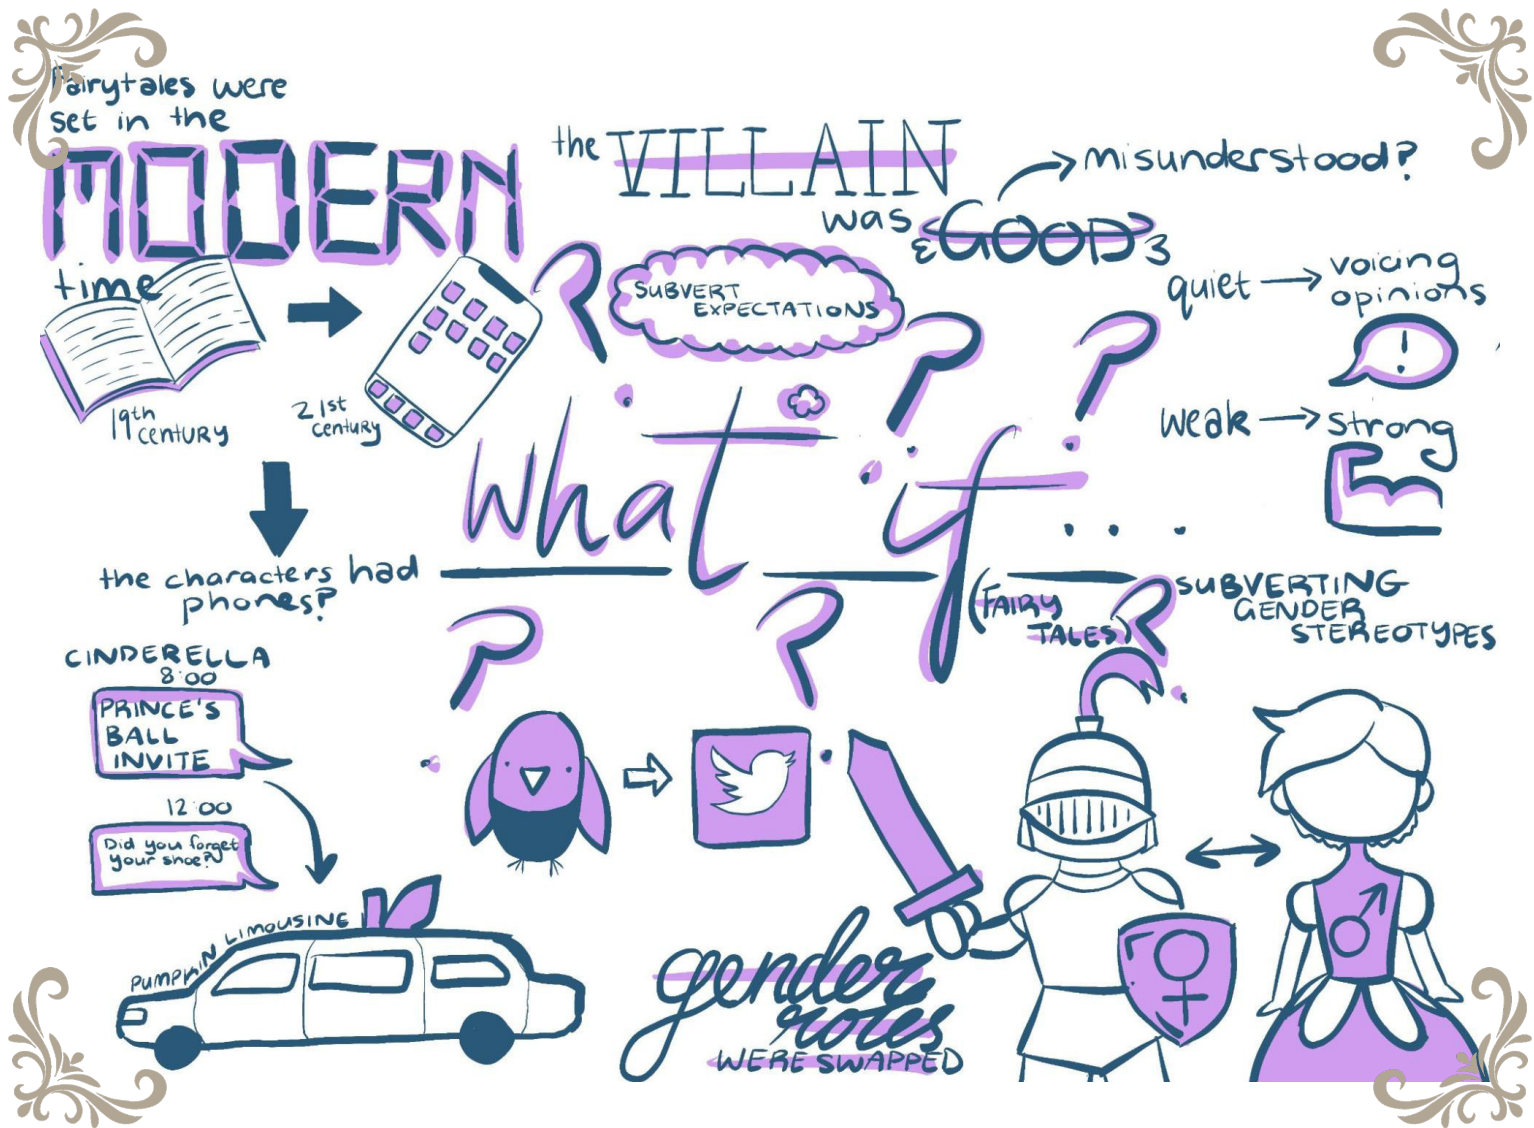 Fairytales were
set in the
MODERN
time
19th
CENTURY
21st
CENTURY
the characters had
phones?
CINDERELLA
8:00
PRINCE'S
BALL
INVITE
12:00
Did you forget
your shoe?
PUMPKIN LIMOUSINE
the VILLAIN
was GOOD
misunderstood?
SUBVERT
EXPECTATIONS
What if...
(FAIRY
TALES)
quiet → voicing
opinions
!
weak → strong
SUBVERTING
GENDER
STEREOTYPES
gender
roles
WERE SWAPPED